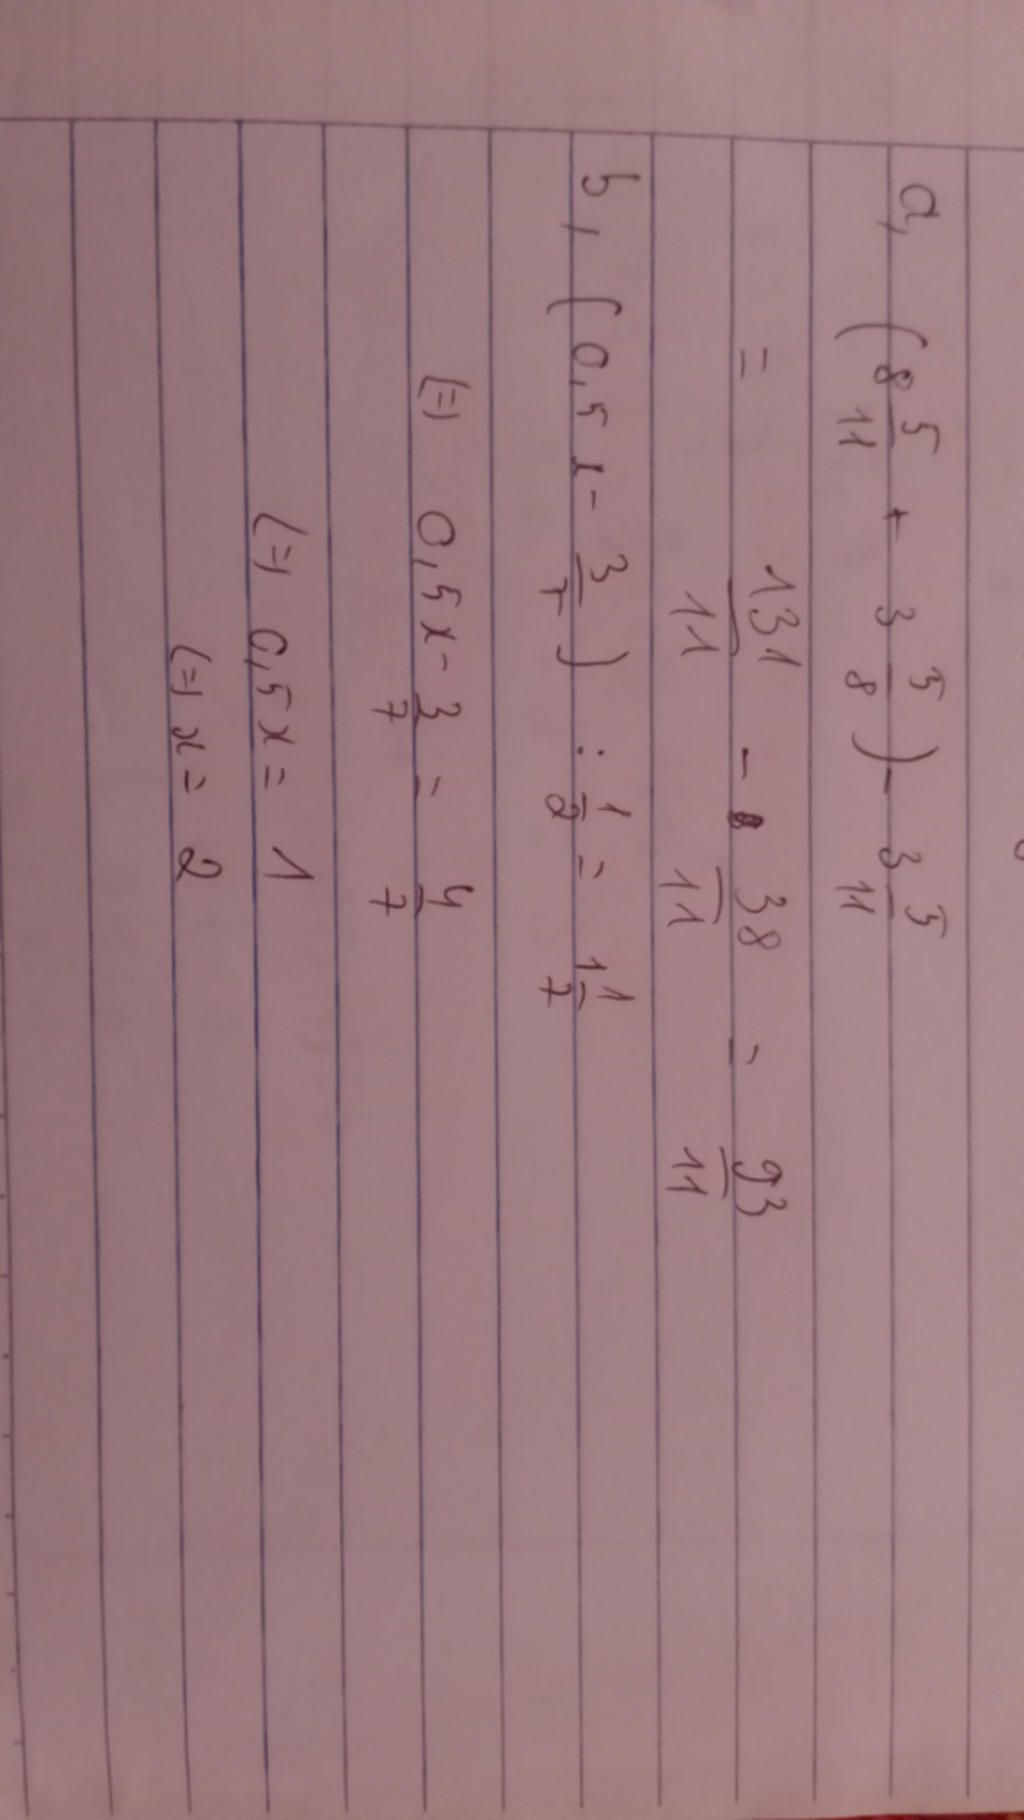 a, (8 5/11 + 3 5/8) - 3 5/11
= 131/11 - 38/11 = 93/11
b, (0,5x - 3/7) : 1/2 = 11/7
(=) 0,5x - 3/7 = 4/7
(=) 0,5x = 1
(=) x = 2